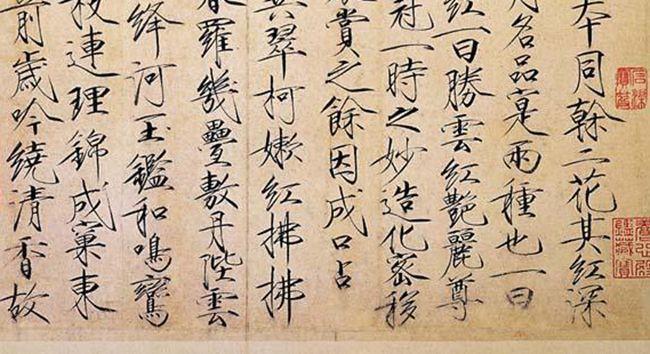 本同幹二花其紅深
名品寔兩種也一曰
紅一曰勝雲紅艷麗尊
冠一時之妙造化密移
賞之餘因成口占
共翠柯嫩紅拂拂
春羅幾疊敷丹陛雲
絳河玉鑑和鳴鸞
枝連理錦成窠東
前歲吟繞清香故